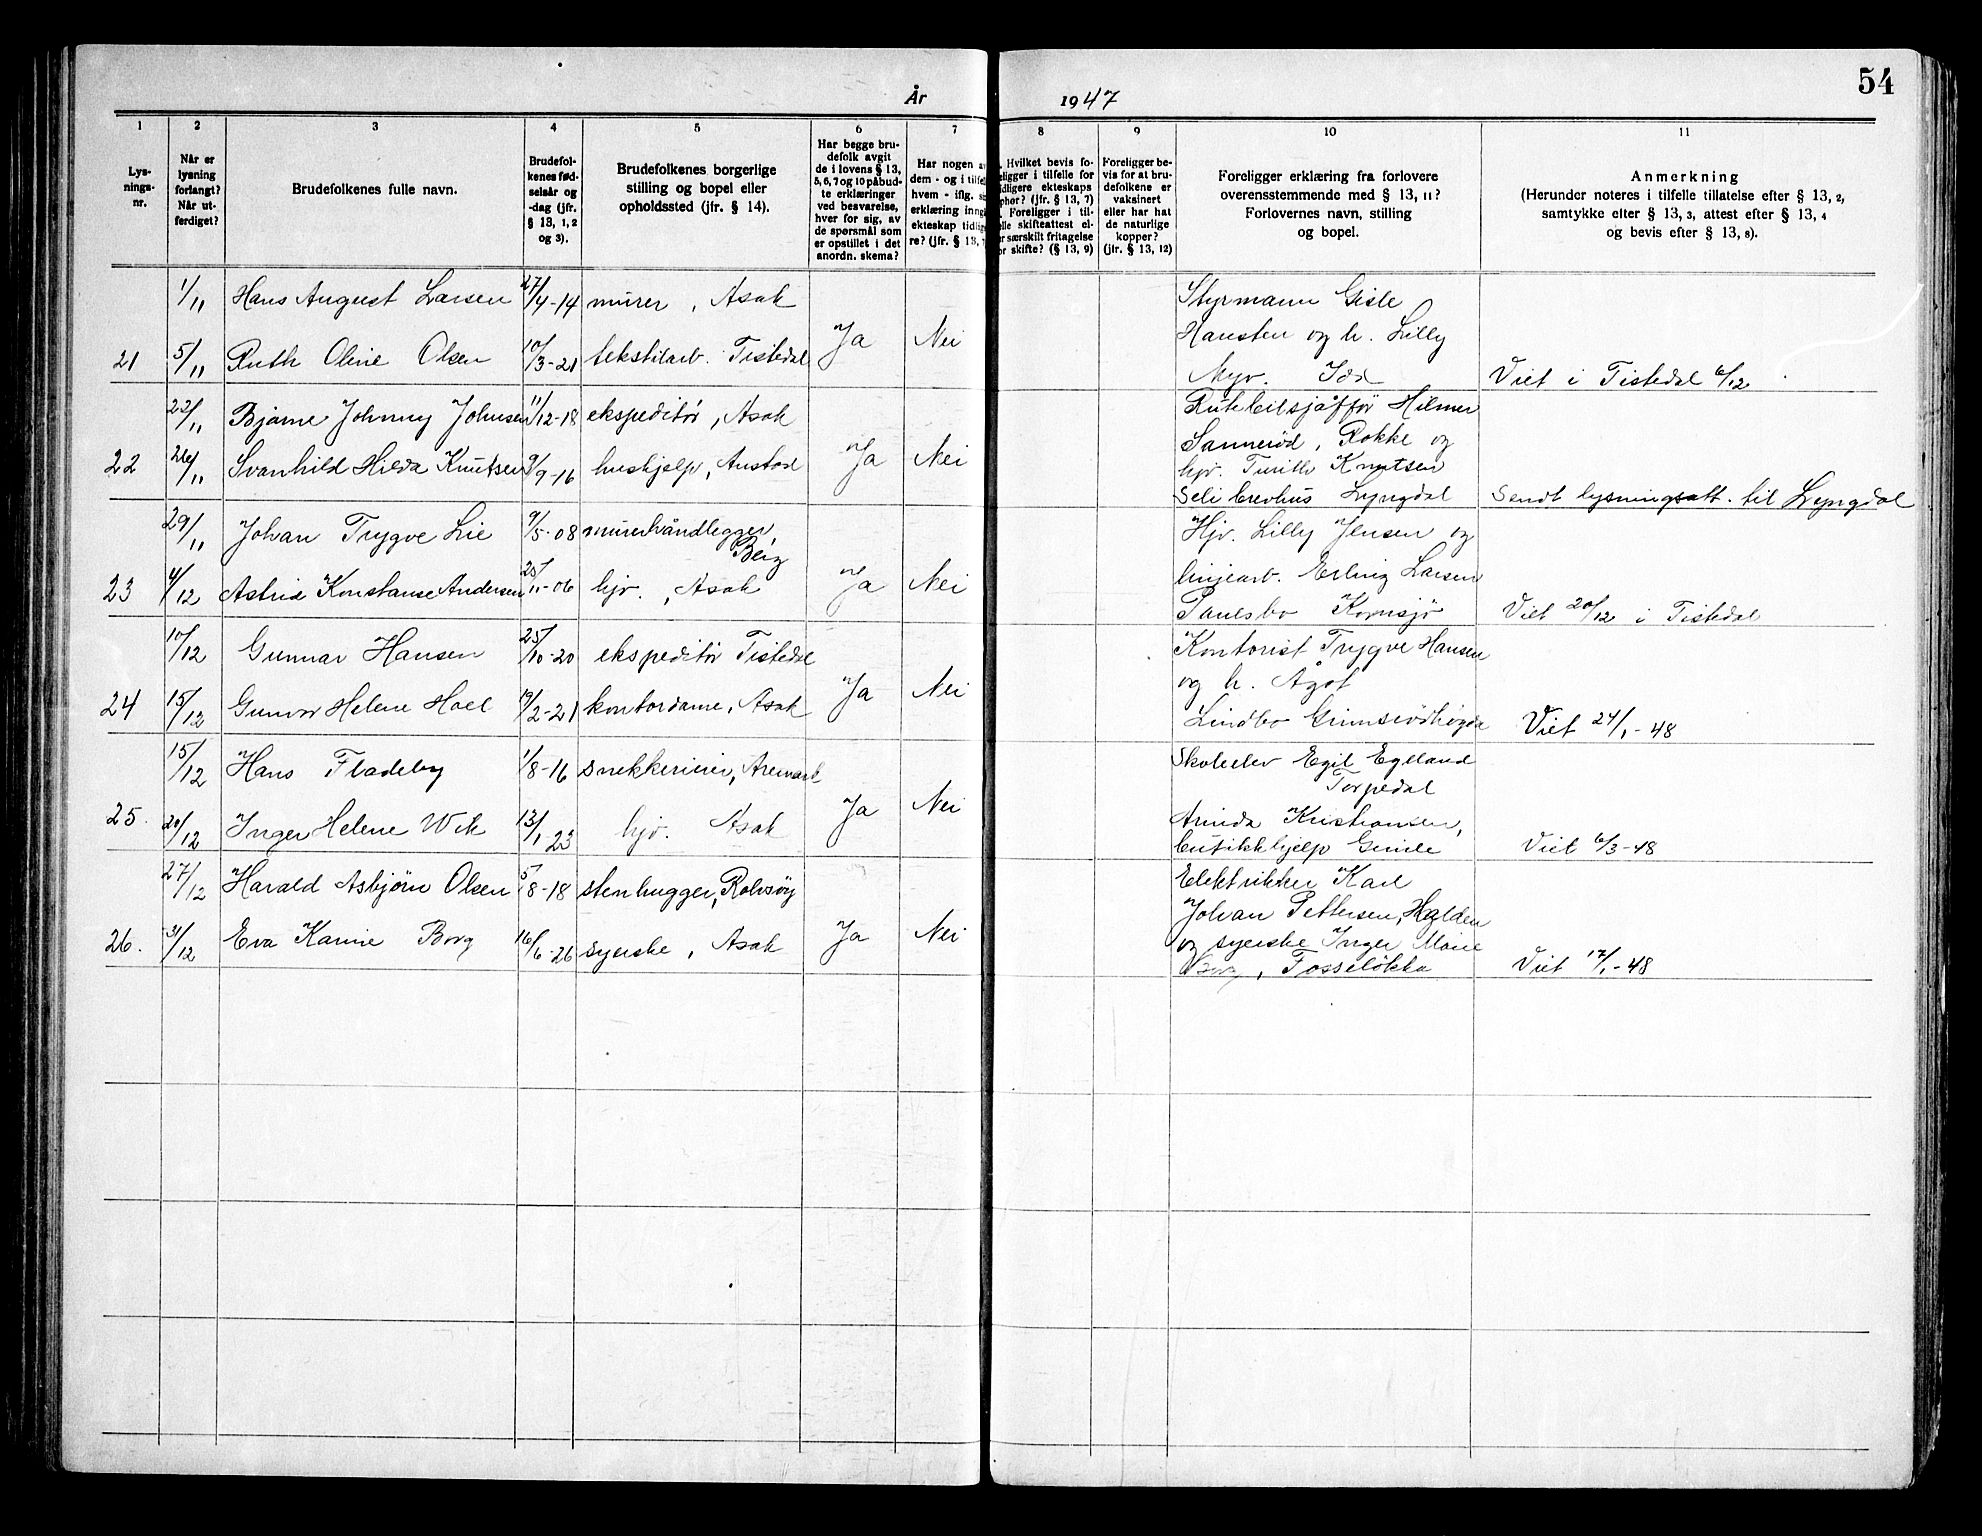 54
År 1947
1 2 3 4 5 6 7 8 9 10 11
Lys-
nings-
nr.
Når er
lysning
forlangt?
Når ut-
ferdiget?
Brudefolkenes fulle navn.
Brudefol-
kenes fød-
selsår og
-dag (jfr.
§ 13, 1, 2
og 3).
Brudefolkenes borgerlige
stilling og bopel eller
opholdssted (jfr. § 14).
Har begge bru-
defolk avgit
de i lovens § 13,
5, 6, 7 og 10 påbud-
te erklæringer
ved besvarelse,
hver for sig, av
de spørsmål som
er opstillet i det
anordn. skema?
Har nogen av
dem - og i tilfel
hvem - iflg. s
erklæring inng
ekteskap tidlig
re? (jfr. § 13,
. Hvilket bevis fo-
eligger i tilfelle for
idligere ekteskaps
phør? (jfr. § 13, 7)
. Foreligger i til-
elle skifteattest el-
r særskilt fritagelse
or skifte? (§ 13, 9)
Foreligger be-
vis for at bru-
defolkene er
vaksinert
eller har hat
de naturlige
kopper?
(jfr. § 13, 12)
Foreligger erklæring fra forlovere
overensstemmende med § 13, 11?
Forlovernes navn, stilling
og bopel.
Anmerkning
(Herunder noteres i tilfelle tillatelse efter § 13, 2,
samtykke efter § 13, 3, attest efter § 13, 4
og bevis efter § 13, 8).
1/11 Hans August Larsen 27/4-14 murer, Asak
21 5/11 Ruth Oline Olsen 10/3-21 tekstilarb. Tistedal Ja Nei
Styrmann Gisle
Hansten og h. Lilly
Myr. Idd
Viet i Tistedal 6/12
22/11 Bjarne Johnny Johnsen 11/12-18 ekspeditør, Asak
22 26/11 Svanhild Hilda Knutsen 9/9-16 hushjelp, Austad Ja Nei
Rutebilsjåfør Hilmer
Sannerød, Rokke og
hjv. Turith Knutsen
Seli brevhus Lyngdal
Sendt lysningsatt. til Lyngdal
29/11 Johan Trygve Lie 9/5-08 murerhåndlegger,
Berg
23 4/12 Astrid Konstanse Andersen 25/11-06 hjv., Asak Ja Nei
Hjv. Lilly Jensen og
linjearb. Erling Larsen
Paulsbo Kornsjø
Viet 20/12 i Tistedal
10/12 Gunnar Hansen 25/10-20 ekspeditør Tistedal
24 15/12 Gunvor Helene Hoel 19/2-21 kontordame, Asak Ja Nei
Kontorist Trygve Hansen
og h. Ågot
Lindbo Grimsrødhøgda
Viet 24/1-48
15/12 Hans Fladeby 1/8-16 snekkerieier, Aremark
25. 20/12 Inger Helene Wik 13/1-23 hjv. Asak Ja Nei
Skoleelev Egil Egeland
Torpedal
Arnida Kristiansen,
butikkhjelp Gimle
Viet 6/3-48
27/12 Harald Asbjørn Olsen 5/8-18 stenhugger, Rolvsøy
26. 31/12 Eva Karine Borg 16/6-26 syerske, Asak Ja Nei
Elektrikker Karl
Johan Pettersen, Halden
og syerske Inger Marie
Borg, Fosseløkka
Viet 17/1-48